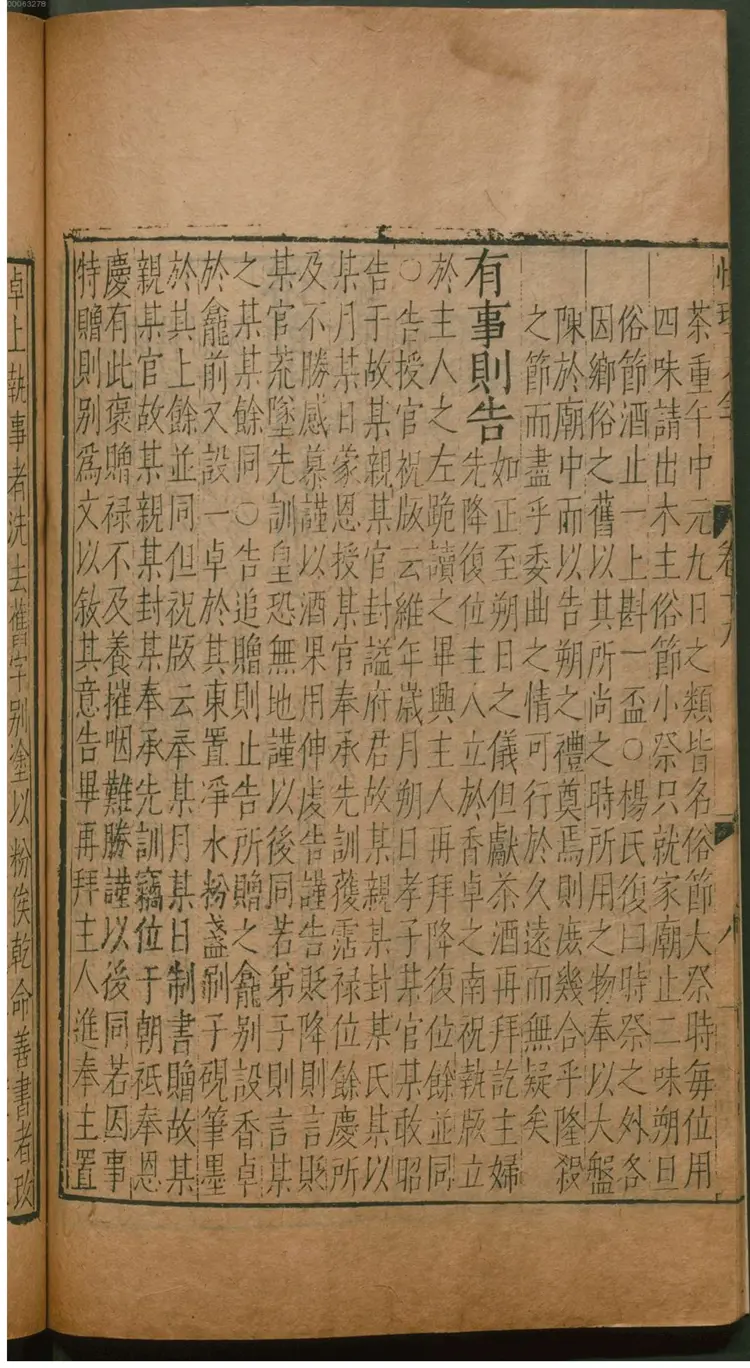 00063278
茶重午中元九日之類皆名俗節大祭時每位用
四味請出木主俗節小祭只就家廟止二味朔旦
俗節酒止一上斟一盃○楊氏復曰時祭之外各
因鄉俗之舊以其所尚之時所用之物奉以大盤
陳於廟中而以告朔之禮奠焉則庶幾合乎隆殺
之節而盡乎委曲之情可行於久遠而無疑矣
有事則告如正至朔日之儀但獻茶酒再拜訖主婦
先降復位主人立於香卓之南祝執版立
於主人之左跪讀之畢興主人再拜降復位餘並同
○告授官祝版云維年歲月朔日孝子某官某敢昭
告于故某親某官封謚府君故某親某封某氏某以
某月某日蒙恩授某官奉承先訓獲霑祿位餘慶所
及不勝感慕謹以酒果用伸虔告謹告貶降則言貶
某官荒墜先訓皇恐無地謹以後同若弟子則言某
之某某餘同○告追贈則止告所贈之龕别設香卓
於龕前又設一卓於其東置淨水粉盞刷子硯筆墨
於其上餘並同但祝版云奉某月某日制書贈故某
親某官故某親某封某奉承先訓竊位于朝祗奉恩
慶有此褒贈祿不及養摧咽難勝謹以後同若因事
特贈則别爲文以敘其意告畢再拜主人進奉主置
卓上執事者洗去舊字别塗以粉俟乾命善書者改